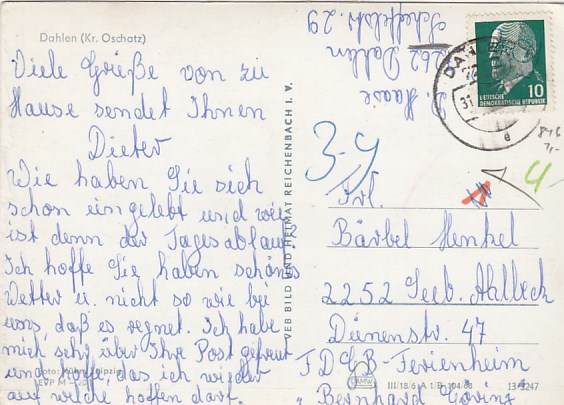 Dahlen (Kr. Oschatz)
Viele Grüße von zu
Hause sendet Ihnen
Dieter
Wie haben Sie sich
schon eingelebt und wie
ist denn der Tagesablauf?
Ich hoffe Sie haben schönes
Wetter u. nicht so wie bei
uns, daß es regnet. Ich habe
mich sehr über Ihre Post gefreut
und hoffe, das ich wieder
auf welche hoffen darf.
VEB BILD UND HEIMAT REICHENBACH I. V.
D. Haase
7262 Dahlen
Scheffelstr. 29
10
DEUTSCHE
DEMOKRATISCHE REPUBLIK
DAHLEN
31
e
846
7,-
3-4
4
Frl.
Bärbel Henkel
2252 Seeb. Ahlbeck
Dünenstr. 47
FDGB-Ferienheim
"Bernhard Göring"
III/18/6 A 1/B 104/68